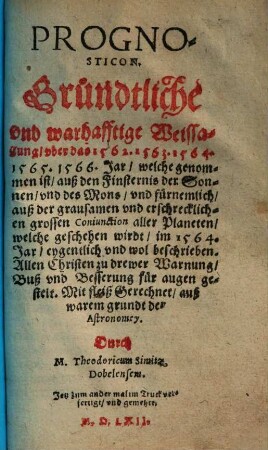 PROGNO-
STICON.
Gründtliche
vnd warhafftige Weissa-
gung/ vber das 1562. 1563. 1564.
1565. 1566. Jar/ welche genom-
men ist/ auß den Finsternis der Son-
nen/ vnd des Mons/ vnd fürnemlich/
auß der grausamen vnd erschrecklich-
en grossen Coniunction aller Planeten/
welche geschehen wirdt/ im 1564.
Jar/ eygentlich vnd wol beschrieben.
Allen Christen zu drewer Warnung/
Buß vnd Besserung für augen ge-
stelt. Mit fleiß Gerechnet/ auß
warem grundt der
Astronomey.
Durch
M. Theodoricum Simitz
Dobelensem.
Jetz zum ander mal im Truck ver-
fertigt/ vnd gemehrt.
M. D. LXII.